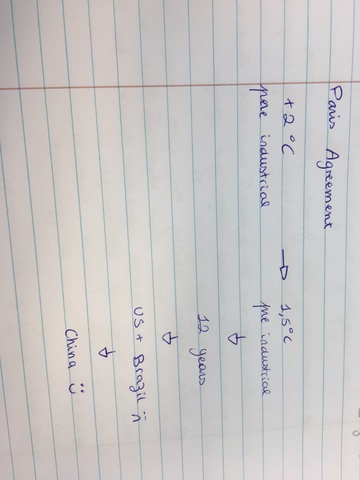 Paris Agreement
+ 2°C → 1,5°C
pere industrial pre industrial
↓
12 years
↓
US + Brazil :(
↓
China :)